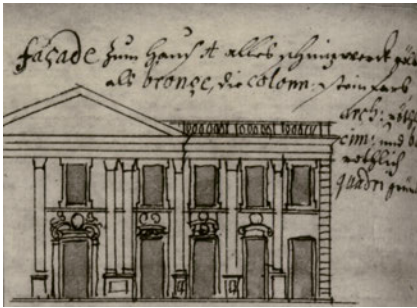 façade zum Hauß A alles schnizwerck
als bronze, die colonn: steinfarb
arch: röthl
cim: und b
röthlich
quadri grün